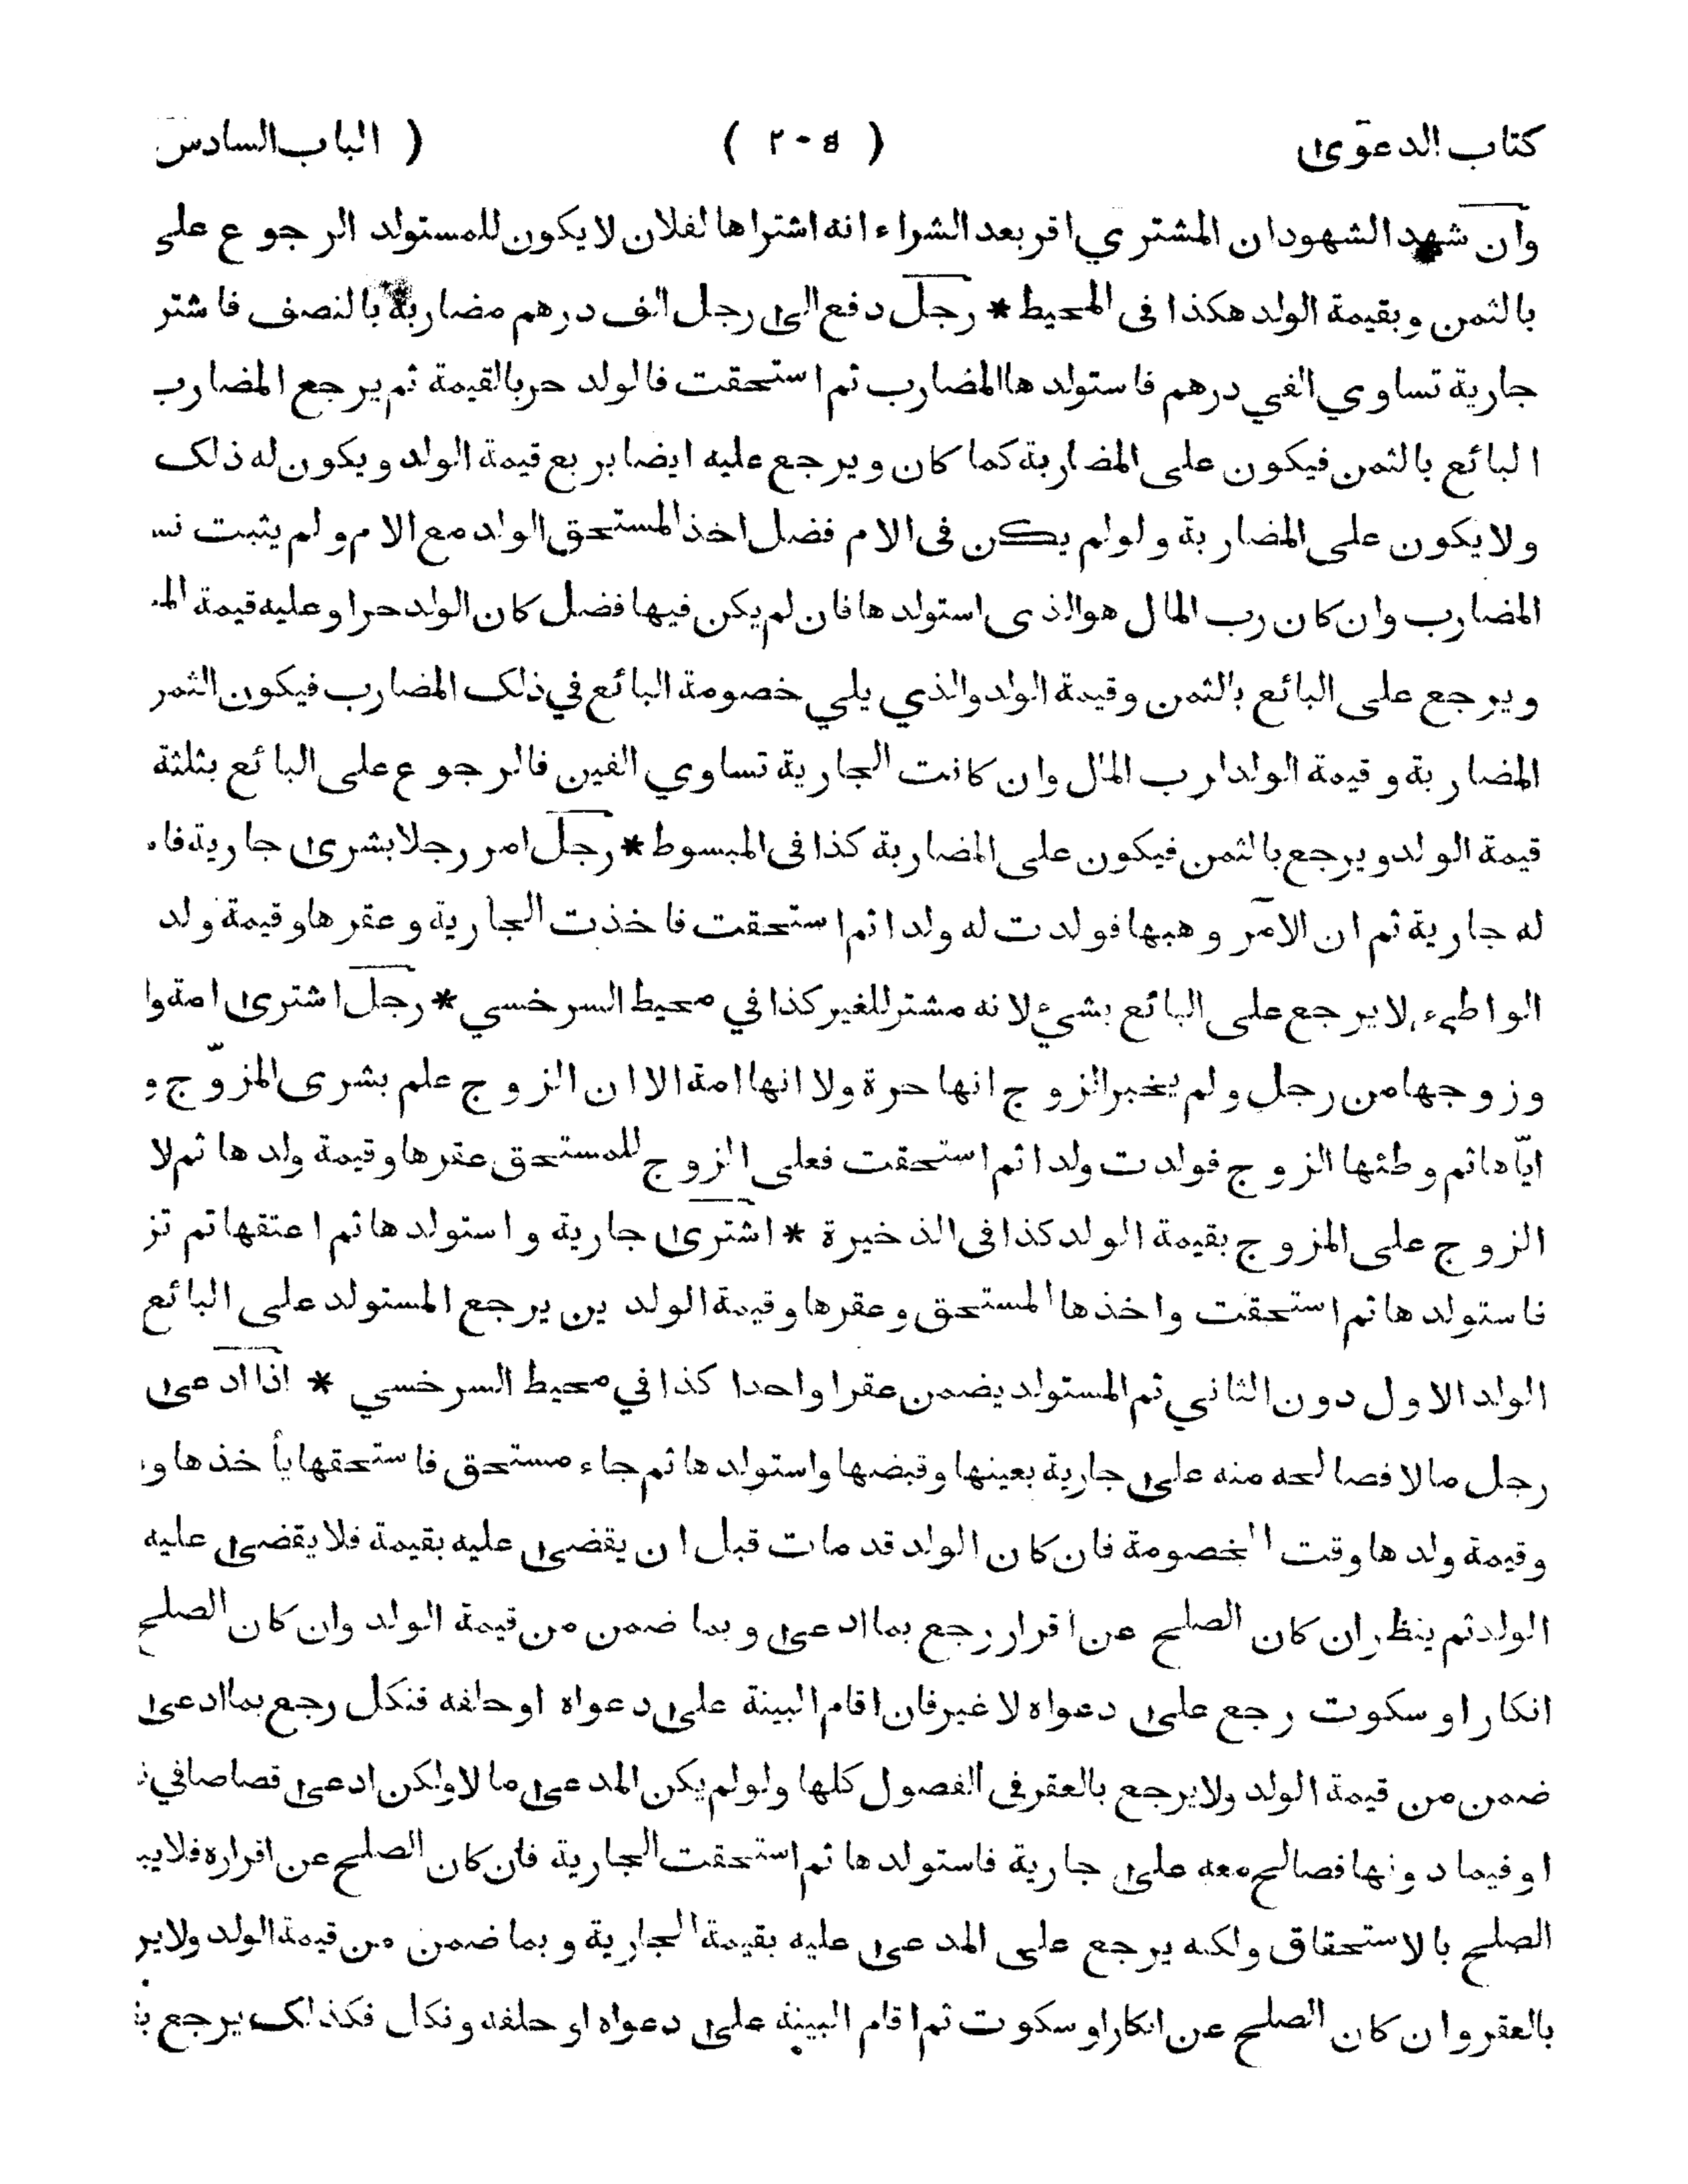 كتاب الدعوى ( ٢٠٥ ) ( الباب السادس
وان شهد الشهود ان المشتري اقر بعد الشراء انه اشتراها لفلان لا يكون للمستولد الرجوع على
بالثمن وبقيمة الولد هكذا فى المحيط * رجل دفع الى رجل الف درهم مضاربة بالنصف فاشتر
جارية تساوي الفي درهم فاستولدها المضارب ثم استحقت فالولد حر بالقيمة ثم يرجع المضارب
البائع بالثمن فيكون على المضاربة كما كان ويرجع عليه ايضا بربع قيمة الولد ويكون له ذلك
ولا يكون على المضاربة ولو لم يكن فى الام فضل اخذ المستحق الولد مع الام ولم يثبت نسـ
المضارب وان كان رب المال هو الذى استولدها فان لم يكن فيها فضل كان الولد حرا وعليه قيمة
ويرجع على البائع بالثمن وقيمة الولد والذي يلي خصومة البائع في ذلك المضارب فيكون الثمن
المضاربة وقيمة الولد لرب المال وان كانت الجارية تساوي الفين فالرجوع على البائع بثلثة
قيمة الولد ويرجع بالثمن فيكون على المضاربة كذا فى المبسوط * رجل امر رجلا بشرى جارية فا
له جارية ثم ان الآمر وهبها فولدت له ولدا ثم استحقت فاخذت الجارية وعقرها وقيمة ولد
الواطىء لا يرجع على البائع بشيء لانه مشتر للغير كذا في محيط السرخسي * رجل اشترى امة وا
وزوجها من رجل ولم يخبر الزوج انها حرة ولا انها امة الا ان الزوج علم بشرى المزوّج و
ايّاها ثم وطئها الزوج فولدت ولدا ثم استحقت فعلى الزوج للمستحق عقرها وقيمة ولدها ثم لا
الزوج على المزوج بقيمة الولد كذا فى الذخيرة * اشترى جارية واستولدها ثم اعتقها ثم تز
فاستولدها ثم استحقت واخذها المستحق وعقرها وقيمة الولدين يرجع المستولد على البائع
الولد الاول دون الثاني ثم المستولد يضمن عقرا واحدا كذا في محيط السرخسي * اذا ادعى
رجل مالا فصالحه منه على جارية بعينها وقبضها واستولدها ثم جاء مستحق فاستحقها يأخذها و
وقيمة ولدها وقت الخصومة فان كان الولد قد مات قبل ان يقضى عليه بقيمة فلا يقضى عليه
الولد ثم ينظر ان كان الصلح عن اقرار رجع بما ادعى وبما ضمن من قيمة الولد وان كان الصلح
انكار او سكوت رجع على دعواه لا غير فان اقام البينة على دعواه او حلفه فنكل رجع بما ادعى
ضمن من قيمة الولد ولا يرجع بالعقر فى الفصول كلها ولو لم يكن المدعى مالا ولكن ادعى قصاصا في
او فيما دونها فصالح معه على جارية فاستولدها ثم استحقت الجارية فان كان الصلح عن اقراره فلا يبـ
الصلح بالاستحقاق ولكنه يرجع على المدعى عليه بقيمة الجارية وبما ضمن من قيمة الولد ولا ير
بالعقر وان كان الصلح عن انكار او سكوت ثم اقام البينة على دعواه او حلفه ونكل فكذلك يرجع بقـ